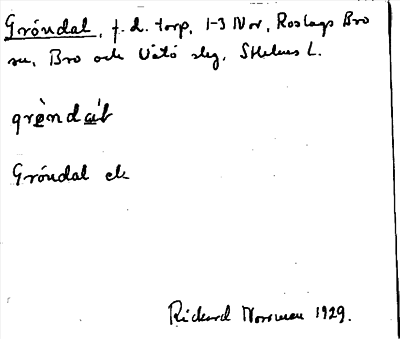 Gröndal, f.d. torp, 1-3 Nor, Roslags Bro
sn, Bro och Vätö slg, Sthlms L.
grö̀ndàl
Gröndal ek
Rickard Norrman 1929.